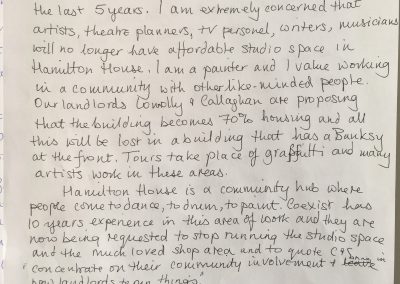 the last 5 years. I am extremely concerned that
artists, theatre planners, TV personel, writers, musicians
will no longer have affordable studio space in
Hamilton House. I am a painter and I value working
in a community with other like-minded people.
Our landlords Connolly & Callaghan are proposing
that the building becomes 70% housing and all
this will be lost in a building that has a Banksy
at the front. Tours take place of graffitti and many
artists work in these areas.
Hamilton House is a community hub where
people come to dance, to drum, to paint. Coexist has
10 years experience in this area of work and they are
now being requested to stop running the studio space
and the much loved shop area and to quote C+C
"concentrate on their community involvement +
how landlords to run things"